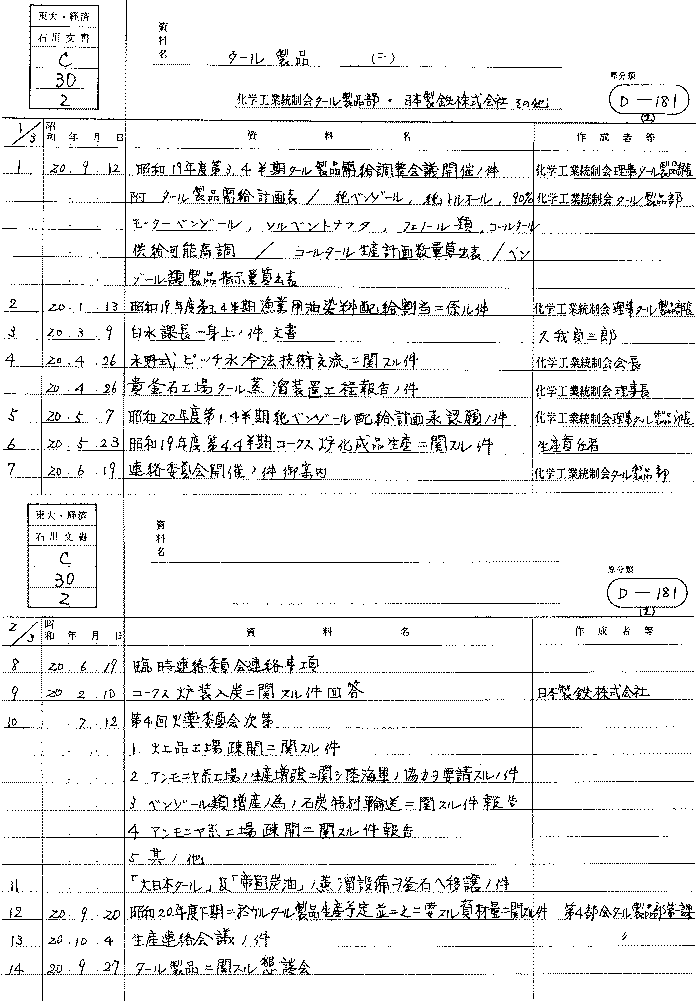 東大・経済
石川文書
C
30
2
資料名
タール製品 (二)
化学工業統制会タール製品部・日本製鉄株式会社 その他
原分類
D-181
(2)
1/3 昭和 年 月 日 資料名 作成者等
1 20. 9. 12 昭和19年度第3.4半期タール製品需給調整会議開催ノ件 化学工業統制会理事タール製品部長
附 タール製品需給計画表 / 純ベンゾール, 純トルオール, 90% 化学工業統制会タール製品部
モーターベンゾール, ソルベントナフタ, フェノール類, コールタール
供給可能高調 / コールタール生産計画数量算出表 / ベン
ゾール類製品指示量算出表
2 20. 1. 13 昭和19年度第3.4半期漁業用油染料配給割当ニ係ル件 化学工業統制会理事タール製品部長
3 20. 3. 9 白水課長一身上ノ件 文書 久我貞三郎
4 20. 4. 26 木野式ピッチ水冷法技術交流ニ関スル件 化学工業統制会会長
20. 4. 26 釜石工場タール蒸溜装置工程報告ノ件 化学工業統制会理事長
5 20. 5. 7 昭和20年度第1.4半期純ベンゾール配給計画承認願ノ件 化学工業統制会理事タール製品部長
6 20. 5. 23 昭和19年度第4.4半期コークス炉化成品生産ニ関スル件 生産責任者
7 20. 6. 19 連絡委員会開催ノ件御案内 化学工業統制会タール製品部
東大・経済
石川文書
C
30
2
資料名
原分類
D-181
(2)
2/3 昭和 年 月 日 資料名 作成者等
8 20. 6. 19 臨時連絡委員会連絡事項
9 20. 2. 10 コークス炉装入炭ニ関スル件回答 日本製鉄株式会社
10 7. 12 第4回火薬委員会次第
1 火工品工場疎開ニ関スル件
2 アンモニヤ系工場ノ生産増強ニ関シ陸海軍ノ協力ヲ要請スル件
3 ベンゾール類増産ノ為ノ石炭特別輸送ニ関スル件報告
4 アンモニヤ系工場疎開ニ関スル件報告
5 其ノ他
11 「大日本タール」及「帝国炭油」ノ蒸溜設備ヲ釜石ヘ移譲ノ件
12 20. 9. 20 昭和20年度下期ニ於ケルタール製品生産予定並ニ之ニ要スル資材量ニ関スル件 第4部会タール製品部第課
13 20. 10. 4 生産連絡会議ノ件 〃
14 20. 9. 27 タール製品ニ関スル懇談会